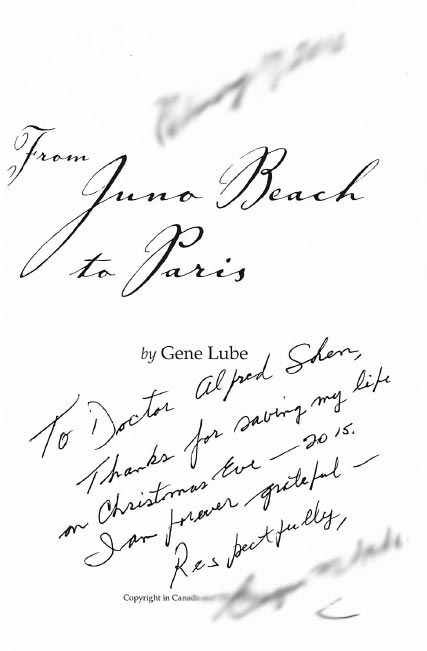 From
Juno Beach
to Paris
by Gene Lube
To Doctor Alfred Shen,
Thanks for saving my life
on Christmas Eve — 2015.
I am forever grateful —
Respectfully,
Copyright in Canada